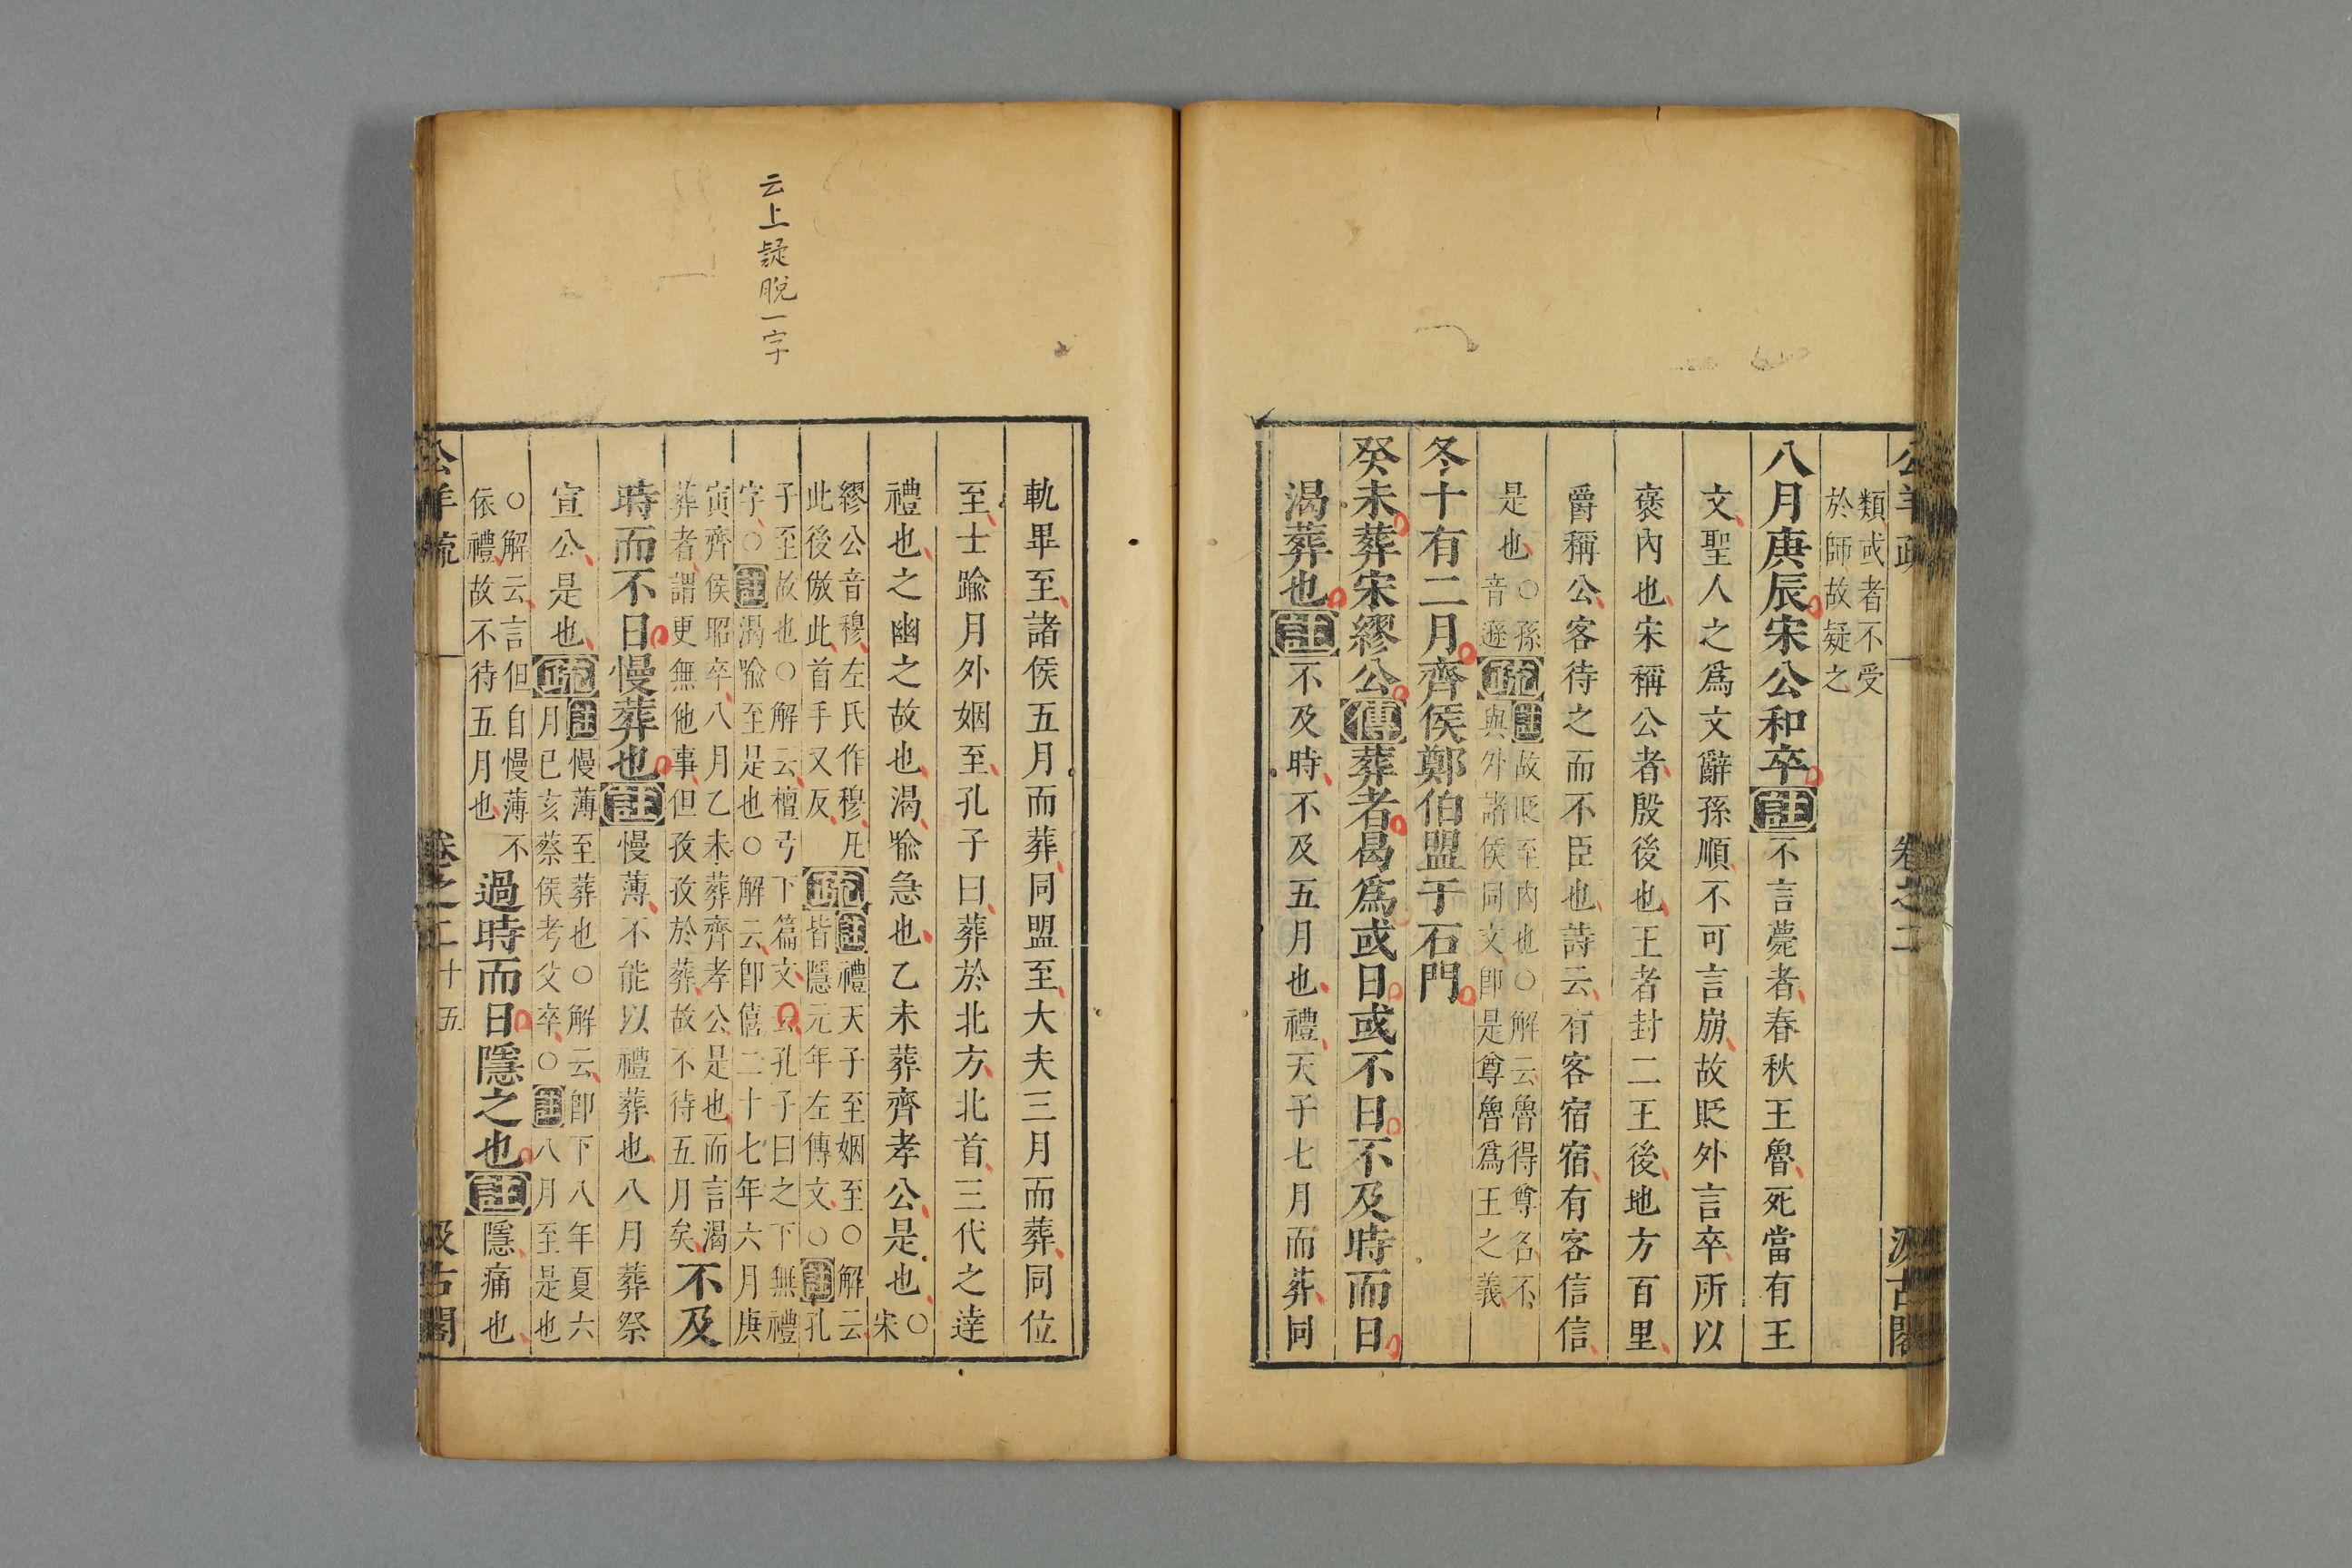 公羊疏 卷之二 汲古閣
類或者不受
於師故疑之
八月庚辰宋公和卒註不言薨者春秋王魯死當有王
文聖人之為文辭孫順不可言崩故貶外言卒所以
褒內也宋稱公者殷後也王者封二王後地方百里
爵稱公客待之而不臣也詩云有客宿宿有客信信
是也
○孫
音遜
疏
註故貶至內也○解云魯得尊名不
與外諸侯同文卽是尊魯爲王之義
冬十有二月齊侯鄭伯盟于石門
癸未葬宋繆公傳葬者曷爲或日或不日不及時而日
渴葬也註不及時不及五月也禮天子七月而葬同
云上疑脫一字
軌畢至諸侯五月而葬同盟至大夫三月而葬同位
至士踰月外姻至孔子曰葬於北方北首三代之達
禮也之幽之故也渴喻急也乙未葬齊孝公是也
○
宋
繆公音穆左氏作穆凡
此後倣此首手又反
疏
註禮天子至姻至○解云
皆隱元年左傳文○註孔
子至故也○解云檀弓下篇文云孔子曰之下無禮
字○註渴喻至是也○解云卽僖二十七年六月庚
寅齊侯昭卒八月乙未葬齊孝公是也而言渴
葬者謂更無他事但孜孜於葬故不待五月矣
不及
時而不日慢葬也註慢薄不能以禮葬也八月葬祭
宣公是也疏
註慢薄至葬也○解云卽下八年夏六
月已亥蔡侯考父卒○註八月至是也
○解云言但自慢薄不
依禮故不待五月也
過時而日隱之也註隱痛也
公羊疏 卷之二 十五 汲古閣